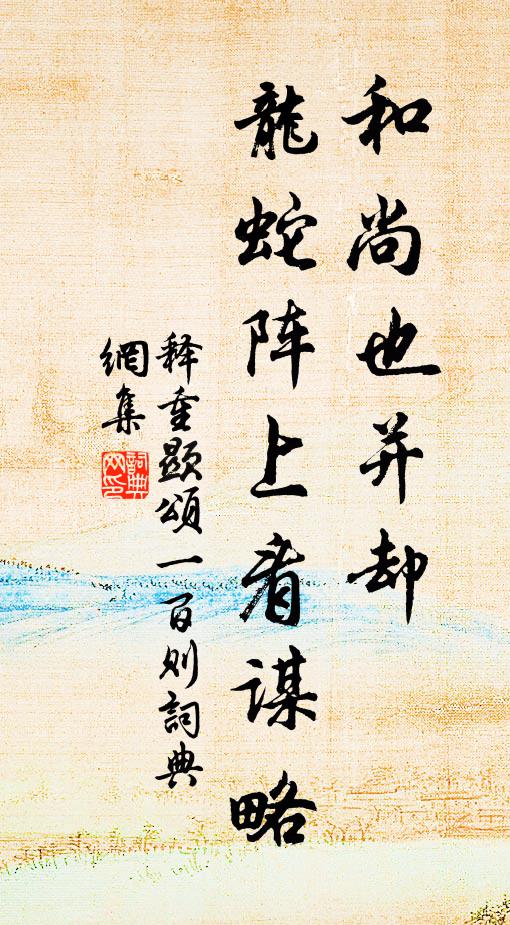 和尚也并却
龍蛇阵上看謀略
释重顯頌一百则詞典
網集
詞典网印